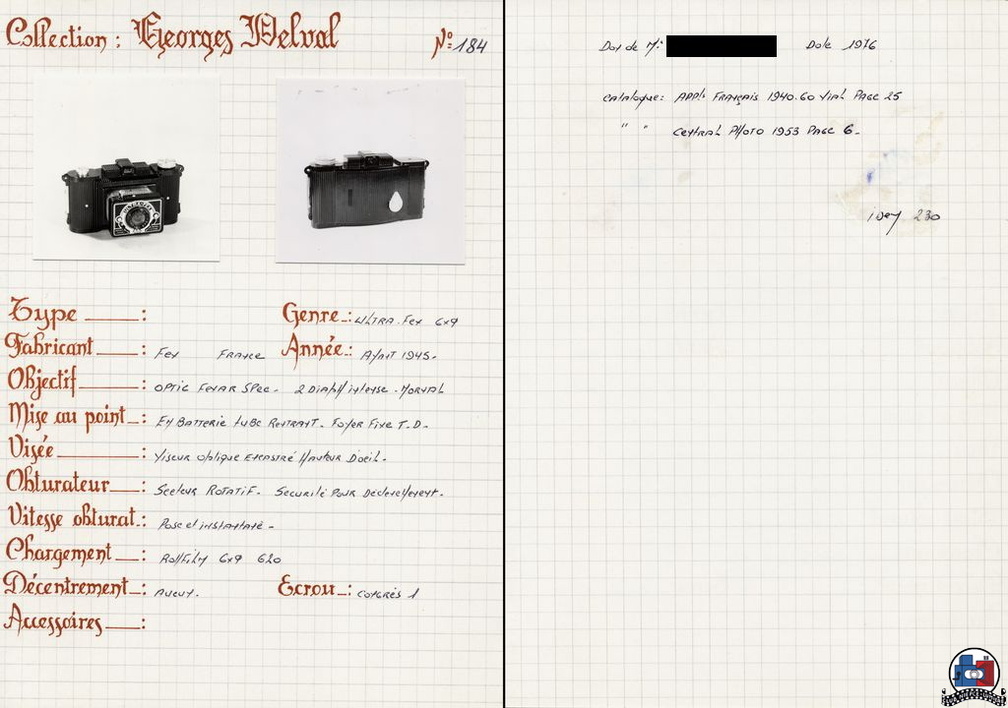 Collection : Georges Delval
N° 184
Type :
Genre : ULTRA. FEX 6x9
Fabricant : FEX FRANCE
Année : AVANT 1945.
Objectif : OPTIC FEXAR SPEC -
Mise au point : EN BATTERIE TUBE RENTRANT. FOYER FIXE T.D.
Visée : VISEUR OPTIQUE ENCASTRÉ HAUTEUR D'OEIL.
Obturateur : SECTEUR ROTATIF. SECURITÉ POUR DECLENCHEMENT.
Vitesse obturat. : Pose et instantané -
Chargement : ROLLFILM 6x9 620
Décentrement : AUCUN.
Ecrou : CONGRÈS 1
Accessoires :
Don de Mr Date 1976
Catalogue : APP.ls FRANÇAIS 1940.60 VIAL PAGE 25
" " CENTRAL PHOTO 1953 PAGE 6 -
230